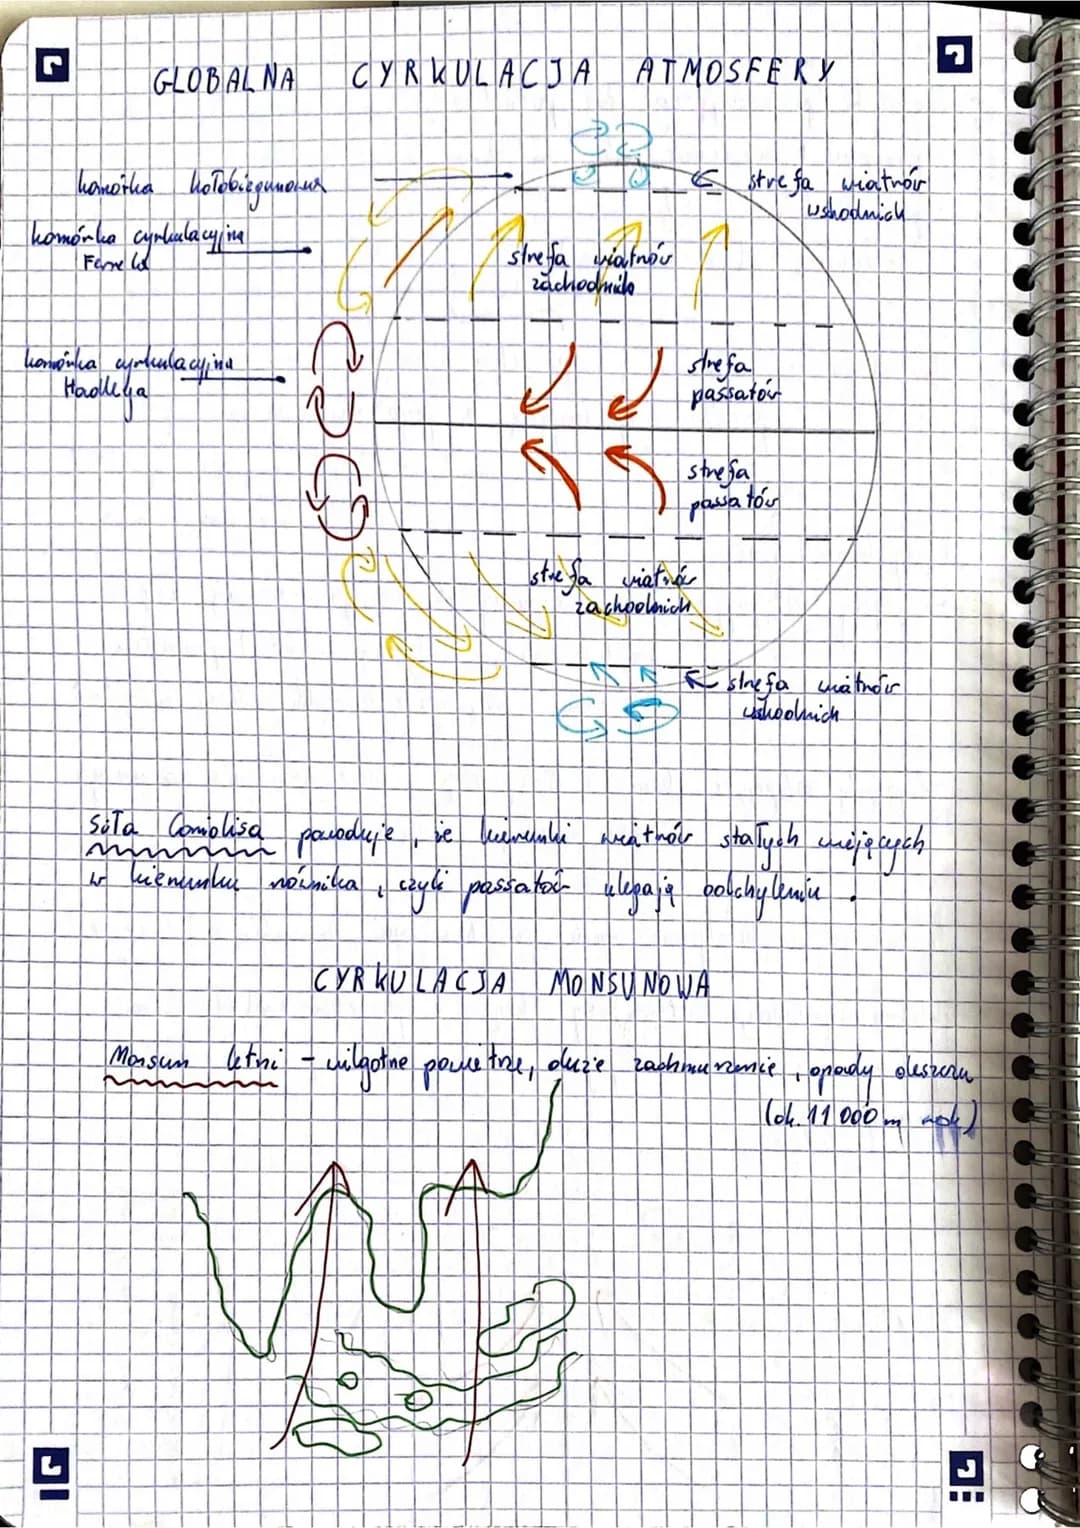 GLOBALNA CYRKULACJA ATMOSFERY
komórka kołobiegunowa
strefa wiatrów
wschodnich
komórka cyrkulacyjna
Ferrela
strefa wiatrów
zachodnich
komórka cyrkulacyjna
Hadleya
strefa
passatów
strefa
passatów
strefa wiatrów
zachodnich
strefa wiatrów
wschodnich
Siła Coriolisa powoduje, że kierunki wiatrów stałych wiejących
w kierunku równika, czyli passatów ulegają odchyleniu.
CYRKULACJA MONSUNOWA
Monsun letni - wilgotne powietrze, duże zachmurzenie, opady deszczu
(ok. 11 000 m rok)